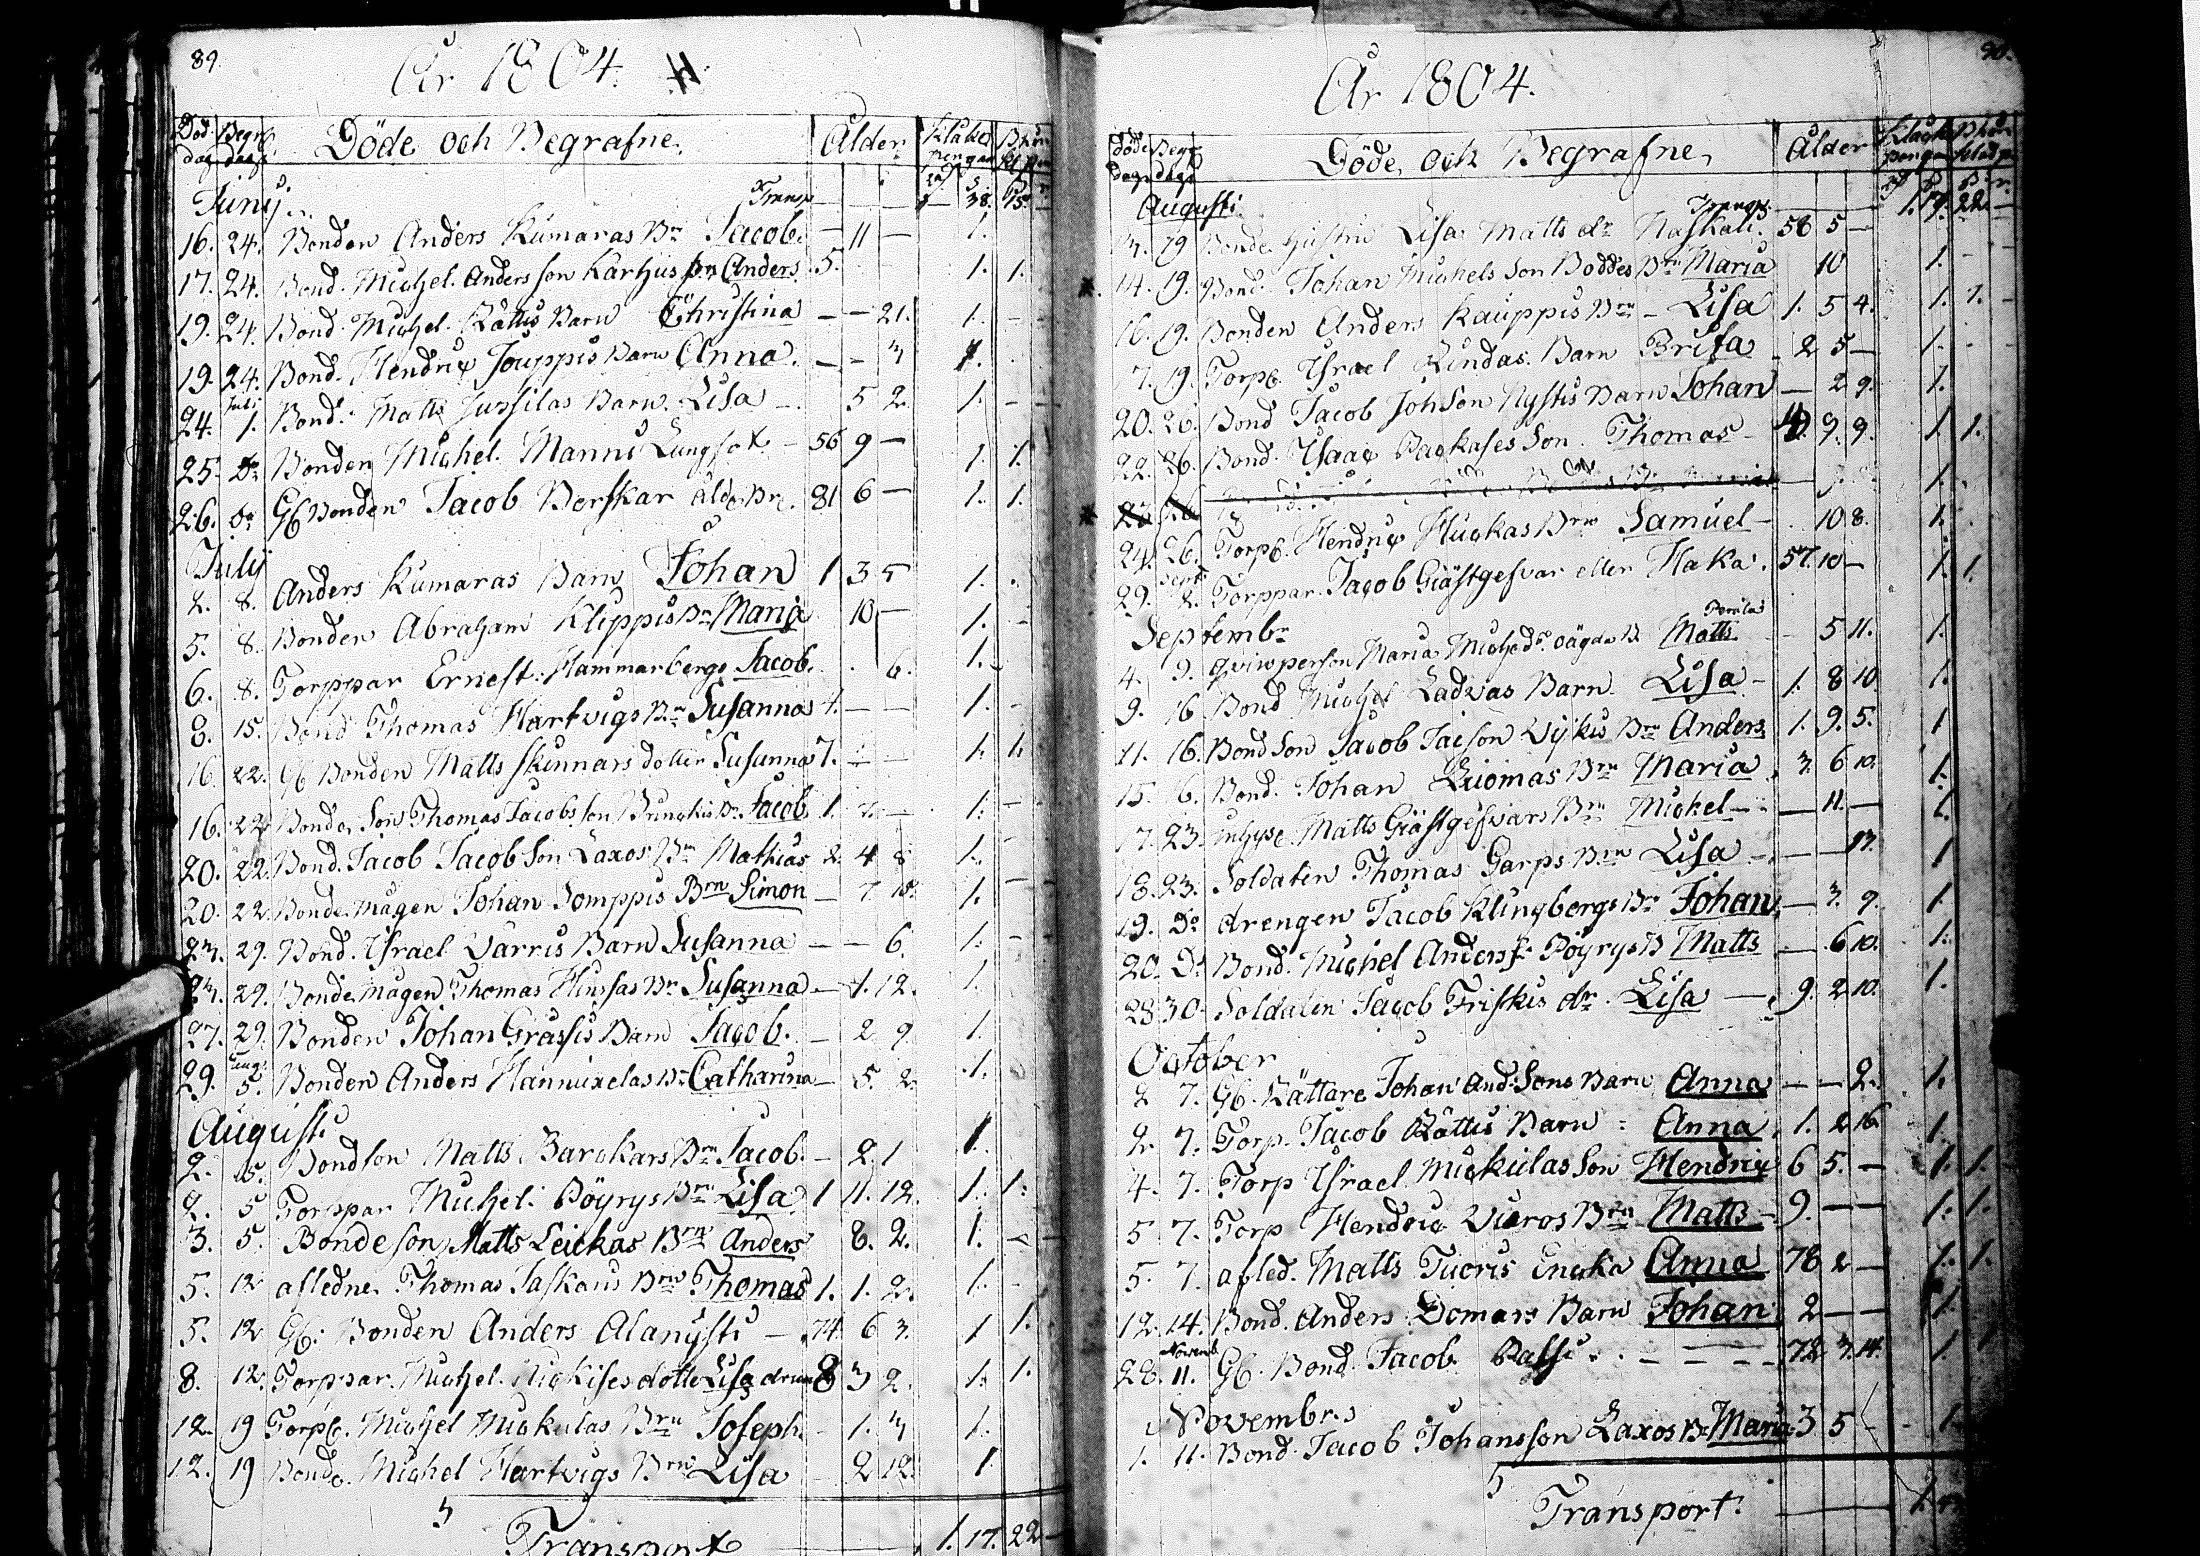 89.
År 1804.
Död dag Begr. dag Döde och Begrafne. Ålder Klåcke pengar
Junij. Transp. 38. 15.
16. 24. Bonden Anders Kumaras Brn Jacob. — 11 — 1.
17. 24. Bond. Michel Anders son Karhus son Anders. 5. 1. 1.
19. 24. Bond. Michel Rättis Barn Christina — — 21. 1.
19. 24. Bond. Hendric Jouppis Barn Anna. — — 3 1.
24. Juli 1. Bond. Matts Jussilas Barn. Lisa — 5 2. 1.
25. Do Bonden Michel Manni Lungsot. — 56 9 — 1. 1.
26. Do Gb Bonden Jacob Berskar åld. Br. 81 6 — 1. 1.
Julij
2. 8. Anders Kumaras Barn Johan 1 3 5 1.
5. 8. Bonden Abraham Klippis Brn Maria 10 — 1.
6. 8. Torppar Ernest Hammarbergs Jacob. 6. 1.
8. 15. Bond Thomas Hartvigs Brn Susanna 1. — — 1.
16. 22. Gb Bonden Matts Skinnars dotter Susanna 7. — — 1. 1.
16. 22 Bonde Son Thomas Jacobs son Brunckis Br. Jacob 1. 2. — 1.
20. 22. Bond. Jacob Jacob Son Laxos Brn Mathias 2. 4 8 1.
20. 22. Bonde Mågen Johan Somppis Brn Simon — 7 10. 1.
23. 29. Bond. Israel Varris Barn Susanna — — 6. 1.
23. 29. Bonde mågen Thomas Hinsas Br Susanna — 1. 12. 1.
27. 29. Bonden Johan Grassis Barn Jacob. — 2 9 1.
29. Aug. 5. Bonden Anders Hannuxelas Br Catharina — 5. 2. 1.
Augusti
2. 5. Bondson Matts Barckars Brn Jacob. — 2 1 1.
2. 5 Torppar Michel Pöyrys Brn Lisa 1 11. 12. 1. 1.
3. 5. Bondeson Matts Leickas Brn Anders 8. 2. 1.
5. 12 afledne Thomas Jaskaris Brn Thomas 1. 1. 2. 1.
5. 12 Gb. Bonden Anders Alanysti — 74. 6 3. 1 1.
8. 12. Torppar Michel Mickises dotter Lisa drun 8 3 2. 1. 1.
12. 19 Torpp. Michel Mickulas Brn Joseph. — 1. 3 1.
12. 19 Bond. Michel Hartvigs Brn Lisa — 2 12. 1
Transport 1. 17. 22 —
90.
År 1804.
Döde dag Begr. dag Döde och Begrafne, Ålder Klåck pengar
Augusti. Transp. 1. 17. 22. —
19 Bonde Hustru Lisa Matts dr Naskali. 58 5 —
14. 19. Bond. Johan Michels Son Boddes Brn Maria 10 1.
16. 19. Bonden Anders Kauppis Brn — Lisa 1. 5 4. 1. 1.
17. 19. Torpp. Israel Rindas Barn Brita — 2 5 — 1.
20. 26. Bond Jacob Joh Son Nystis Barn Johan — 2 9. 1.
22. 26. Bond. Isaac Packases Son. Thomas — 9. 9. 1. 1.
24. 26. Torpp. Hendric Huckas Brn Samuel — 10 8. 1.
29. Sept 2. Torppar Jacob Giästgefvar eller Haka. 57. 10 — 1. 1.
Septembr
4. 9. Qvinsperson Maria Michelsdr oägda B. Matts 5 11. 1.
9. 16 Bond Michel Ladvas Barn Lisa — 1. 8 10 1.
11. 16. Bond Son Jacob Jacson Vykis Brn Anders 1. 9. 5. 1
15. 16. Bond. Johan Luomas Brn Maria 3. 6 10. 1.
17. 23. Inhyse Matts Giästgefvars Brn Mickel — — 11. — 1.
18. 23. Soldaten Thomas Garps Brn Lisa — — — 13. 1
19. Do drengen Jacob Klingbergs Br Johan — 3. 9. 1
20. Do Bond. Michel Anders S. Pöyrys B Matts — 6 10. 1.
28 30. Soldaten Jacob Friskis dr. Lisa — 9. 2 10. 1.
October
2 7. Gb. Rättare Johan And: Sons Barn Anna — — 2. 1.
2. 7. Torp. Jacob Rättis Barn Anna 1. 2 16. 1.
4. 7. Torp Israel Mickulas Son Hendric 6 5. — 1. 1.
5 7. Torp Hendric Vieros Brn Matts — 9. — — 1. 1.
5. 7. afled. Matts Tuoris Encka Anna 78 2 — 1. 1.
12. 14. Bond. Anders Domars Barn Johan 2 — — 1.
28. Novemb. 11. Gb. Bond. Jacob Passi — — — 72 3. 14. 1
Novembris
1. 11. Bond. Jacob Johansson Laxos Br Maria 3 5 1.
Transport.